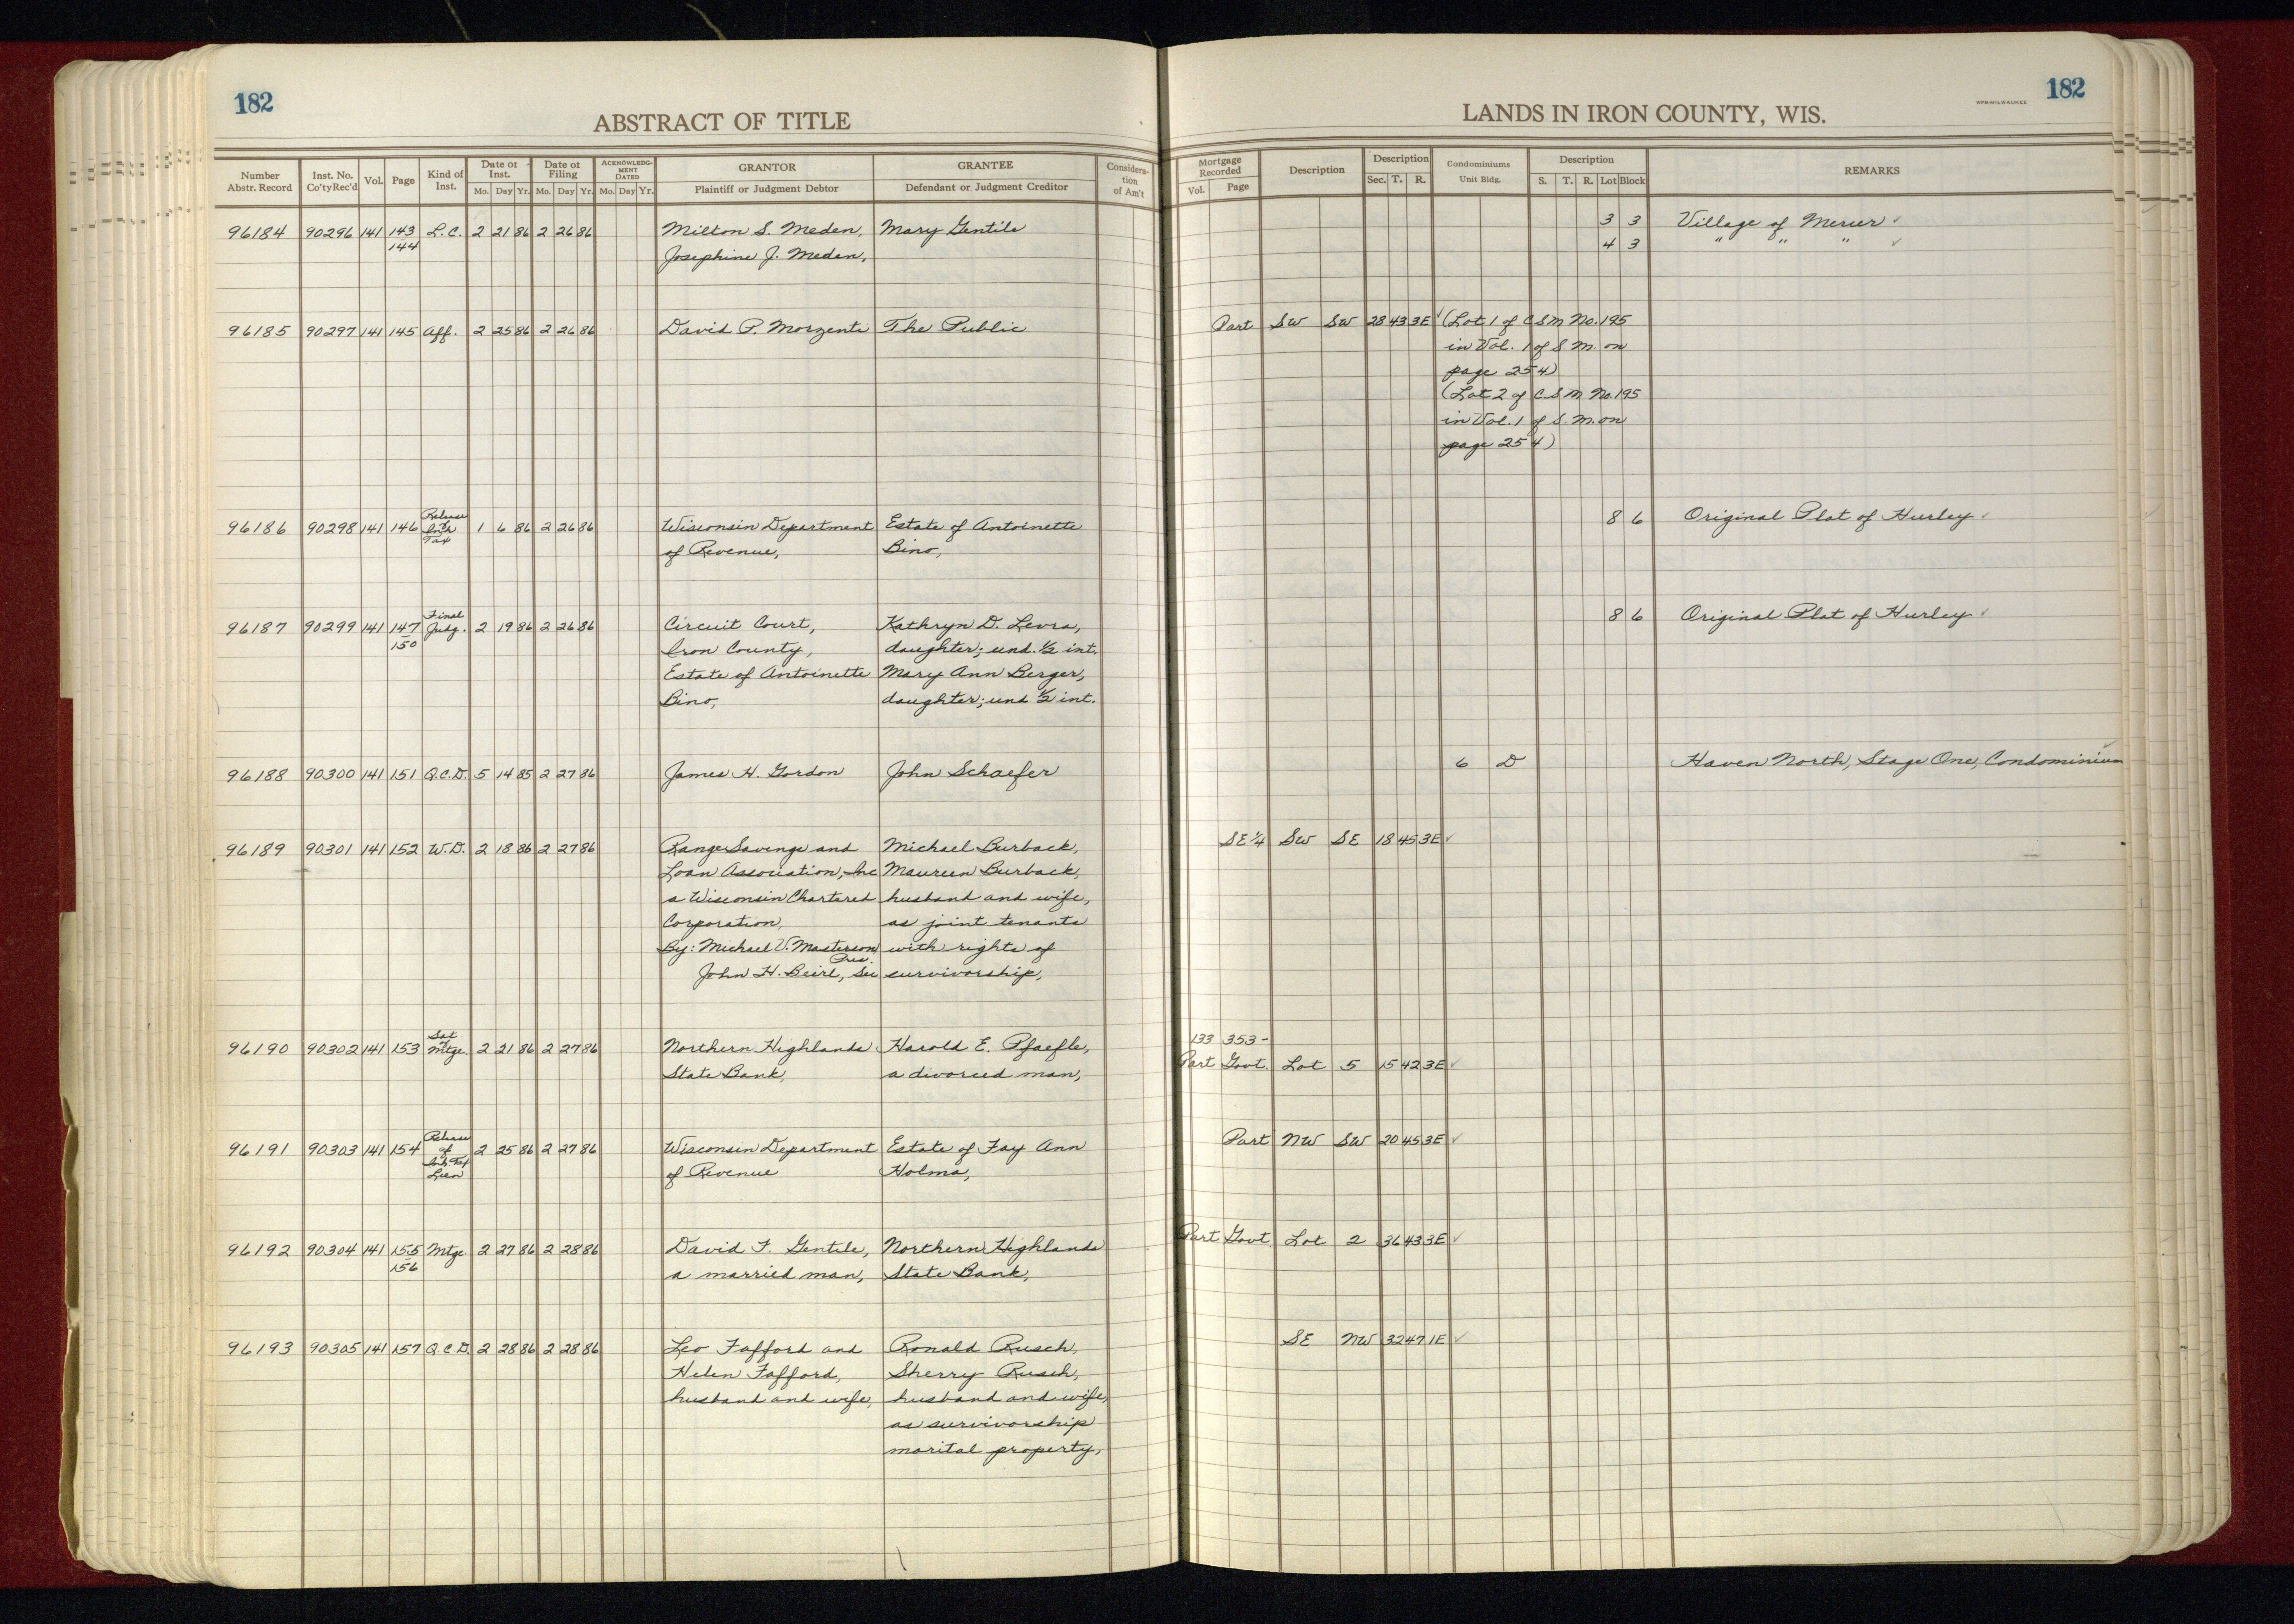 182
ABSTRACT OF TITLE
Number Abstr. Record
Inst. No. Co'ty Rec'd
Vol.
Page
Kind of Inst.
Date of Inst.
Mo. Day Yr.
Date of Filing
Mo. Day Yr.
ACKNOWLEDGMENT DATED
Mo. Day Yr.
GRANTOR
Plaintiff or Judgment Debtor
GRANTEE
Defendant or Judgment Creditor
Consideration of Am't
96184 90296 141 143 L.C. 2 21 86 2 26 86 Milton S. Meden, Mary Gentile
144 Josephine J. Meden,
96185 90297 141 145 Aff. 2 25 86 2 26 86 David P. Morzenti The Public
96186 90298 141 146 Release of Inh. Tax 1 6 86 2 26 86 Wisconsin Department Estate of Antoinette
of Revenue, Bino,
96187 90299 141 147 Final Judg. 2 19 86 2 26 86 Circuit Court, Kathryn D. Levra,
150 Iron County, daughter; und. ½ int.
Estate of Antoinette Mary Ann Berger,
Bino, daughter; und ½ int.
96188 90300 141 151 Q.C.D. 5 14 85 2 27 86 James H. Gordon John Schaefer
96189 90301 141 152 W.D. 2 18 86 2 27 86 Range Savings and Michael Burback,
Loan Association, Inc Maureen Burback,
a Wisconsin Chartered husband and wife,
Corporation, as joint tenants
By: Michael V. Masterson Pres. with rights of
John H. Beirl, Sec survivorship,
96190 90302 141 153 Sat of Mtge. 2 21 86 2 27 86 Northern Highlands Harold E. Pfaefle,
State Bank, a divorced man,
96191 90303 141 154 Release of Inh. Tax Lien 2 25 86 2 27 86 Wisconsin Department Estate of Fay Ann
of Revenue Holma,
96192 90304 141 155 Mtge 2 27 86 2 28 86 David F. Gentile, Northern Highlands
156 a married man, State Bank,
96193 90305 141 157 Q.C.D. 2 28 86 2 28 86 Leo Fafford and Ronald Rusch,
Helen Fafford, Sherry Rusch,
husband and wife, husband and wife,
as survivorship
marital property,
182
WPB-MILWAUKEE
LANDS IN IRON COUNTY, WIS.
Mortgage Recorded
Vol. Page
Description
Description
Sec. T. R.
Condominiums
Unit Bldg.
Description
S. T. R. Lot Block
REMARKS
3 3 Village of Mercer ✓
4 3 " " " ✓
Part SW SW 28 43 3E ✓ (Lot 1 of CSM No. 195
in Vol. 1 of S.M. on
page 254)
(Lot 2 of CSM No. 195
in Vol. 1 of S.M. on
page 254)
8 6 Original Plat of Hurley ✓
8 6 Original Plat of Hurley ✓
6 D Haven North, Stage One, Condominium ✓
SE¼ SW SE 18 45 3E ✓
133 353-
Part Govt. Lot 5 15 42 3E ✓
Part NW SW 20 45 3E ✓
Part Govt. Lot 2 36 43 3E ✓
SE NW 32 47 1E ✓